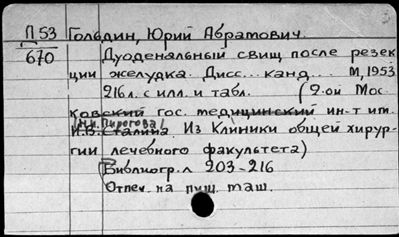 П 53 Гольдин, Юрий Абрамович.
670 Дуоденальный свищ после резек
ции желудка. Дисс... канд... М, 1953
216 л. с илл. и табл. (2-ой Мос
ковский гос. медицинский ин-т им.
Н.И. Пирогова
И.В. Сталина Из Клиники общей хирур-
гии лечебного факультета)
(Библиогр. л 203-216
Отпеч. на пиш. маш.